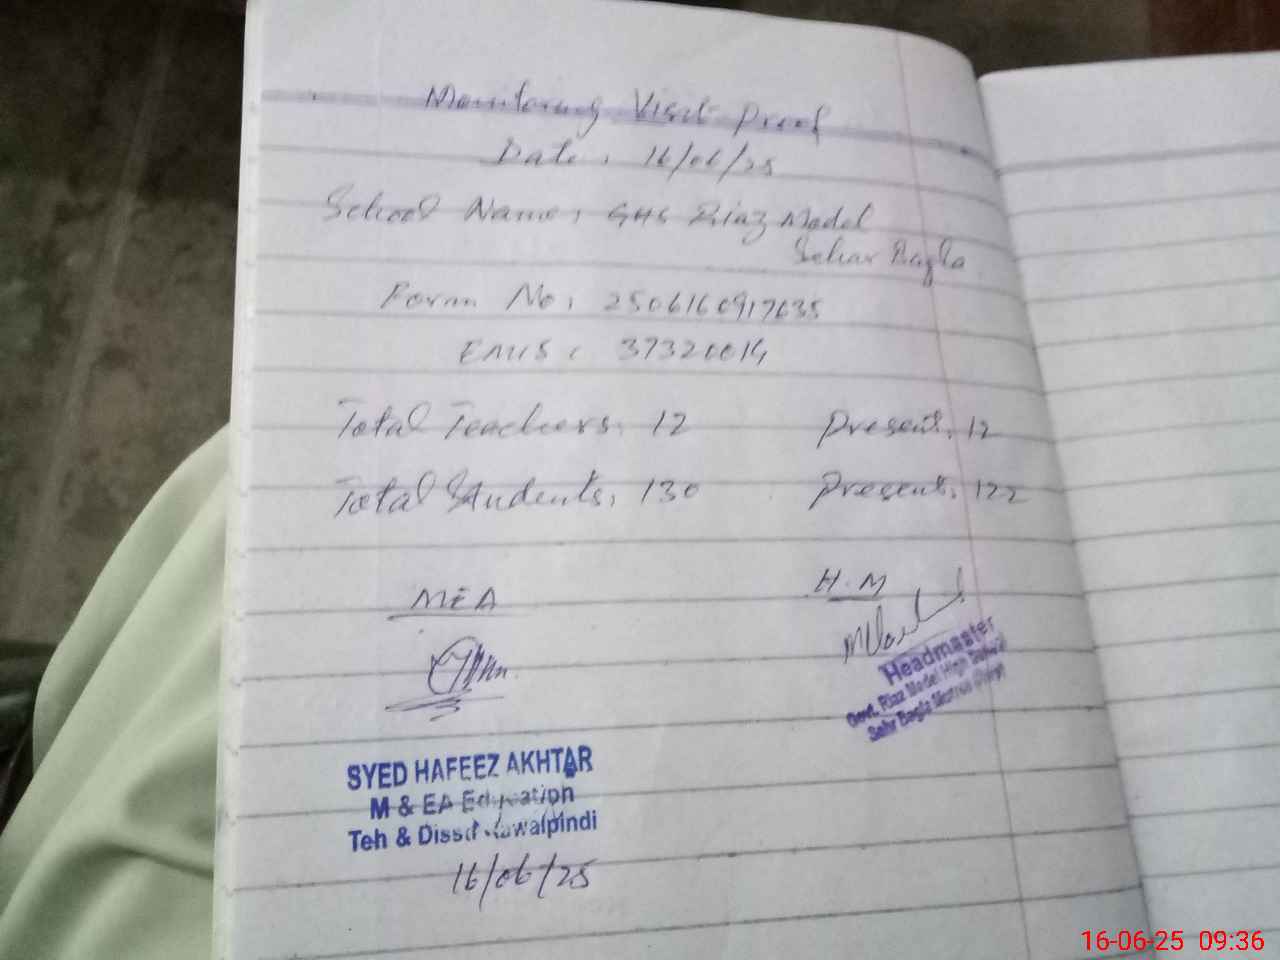 Monitoring Visit Proof
Date: 16/06/25
School Name: GHS Riaz Model
Sehar Bagla
Form No: 2506160917635
EMIS: 37320014
Total Teachers: 12 Present: 12
Total Students: 130 Present: 122
MEA H.M
Headmaster
Govt. Riaz Model High School
Sehr Bagla
SYED HAFEEZ AKHTAR
M & EA Education
Teh & Disst Rawalpindi
16/06/25
16-06-25 09:36